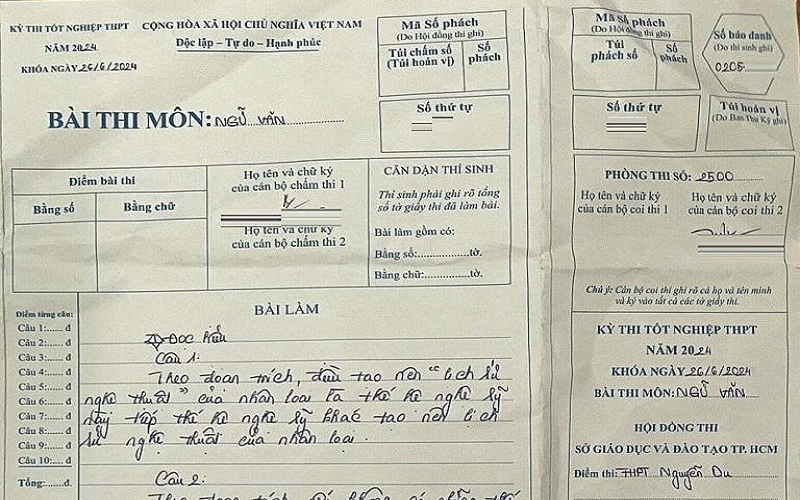 KỲ THI TỐT NGHIỆP THPT
NĂM 2024
KHÓA NGÀY 26/6/2024
CỘNG HÒA XÃ HỘI CHỦ NGHĨA VIỆT NAM
Độc lập – Tự do – Hạnh phúc
Mã Số phách
(Do Hội đồng thi ghi)
Túi chấm số
(Túi hoán vị)
Số
phách
BÀI THI MÔN: NGỮ VĂN
Số thứ tự
Điểm bài thi
Bằng số
Bằng chữ
Họ tên và chữ ký
của cán bộ chấm thi 1
Họ tên và chữ ký
của cán bộ chấm thi 2
CĂN DẶN THÍ SINH
Thí sinh phải ghi rõ tổng
số tờ giấy thi đã làm bài.
Bài làm gồm có:
Bằng số:..................tờ.
Bằng chữ:...............tờ.
BÀI LÀM
Điểm từng câu:
Câu 1:...... đ
Câu 2:...... đ
Câu 3:...... đ
Câu 4:...... đ
Câu 5:...... đ
Câu 6:...... đ
Câu 7:...... đ
Câu 8:...... đ
Câu 9:...... đ
Câu 10:..... đ
Tổng:...... đ
I) Đọc hiểu
Câu 1.
Theo đoạn trích, điều tạo nên "lịch sử
nghệ thuật" của nhân loại là thế hệ nghệ sỹ
này tiếp thế hệ nghệ sỹ khác tạo nên lịch
sử nghệ thuật của nhân loại.
Câu 2.
Theo đoạn trích,
Mã Số phách
(Do Hội đồng thi ghi)
Túi
phách số
Số
phách
Số báo danh
(Do thí sinh ghi)
0205
Số thứ tự
Túi hoán vị
(Do Ban Thư Ký ghi)
PHÒNG THI SỐ: 2500
Họ tên và chữ ký
của cán bộ coi thi 1
Họ tên và chữ ký
của cán bộ coi thi 2
Chú ý: Cán bộ coi thi ghi rõ cả họ và tên mình
và ký vào tất cả các tờ giấy thi.
KỲ THI TỐT NGHIỆP THPT
NĂM 2024
KHÓA NGÀY 26/6/2024
BÀI THI MÔN: NGỮ VĂN
HỘI ĐỒNG THI
SỞ GIÁO DỤC VÀ ĐÀO TẠO TP. HCM
Điểm thi: THPT Nguyễn Du